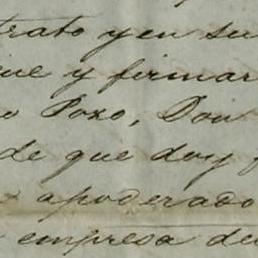 trato y en su
que y firmar
o Pozo, Don
de que doy f
apoderado
empresa de